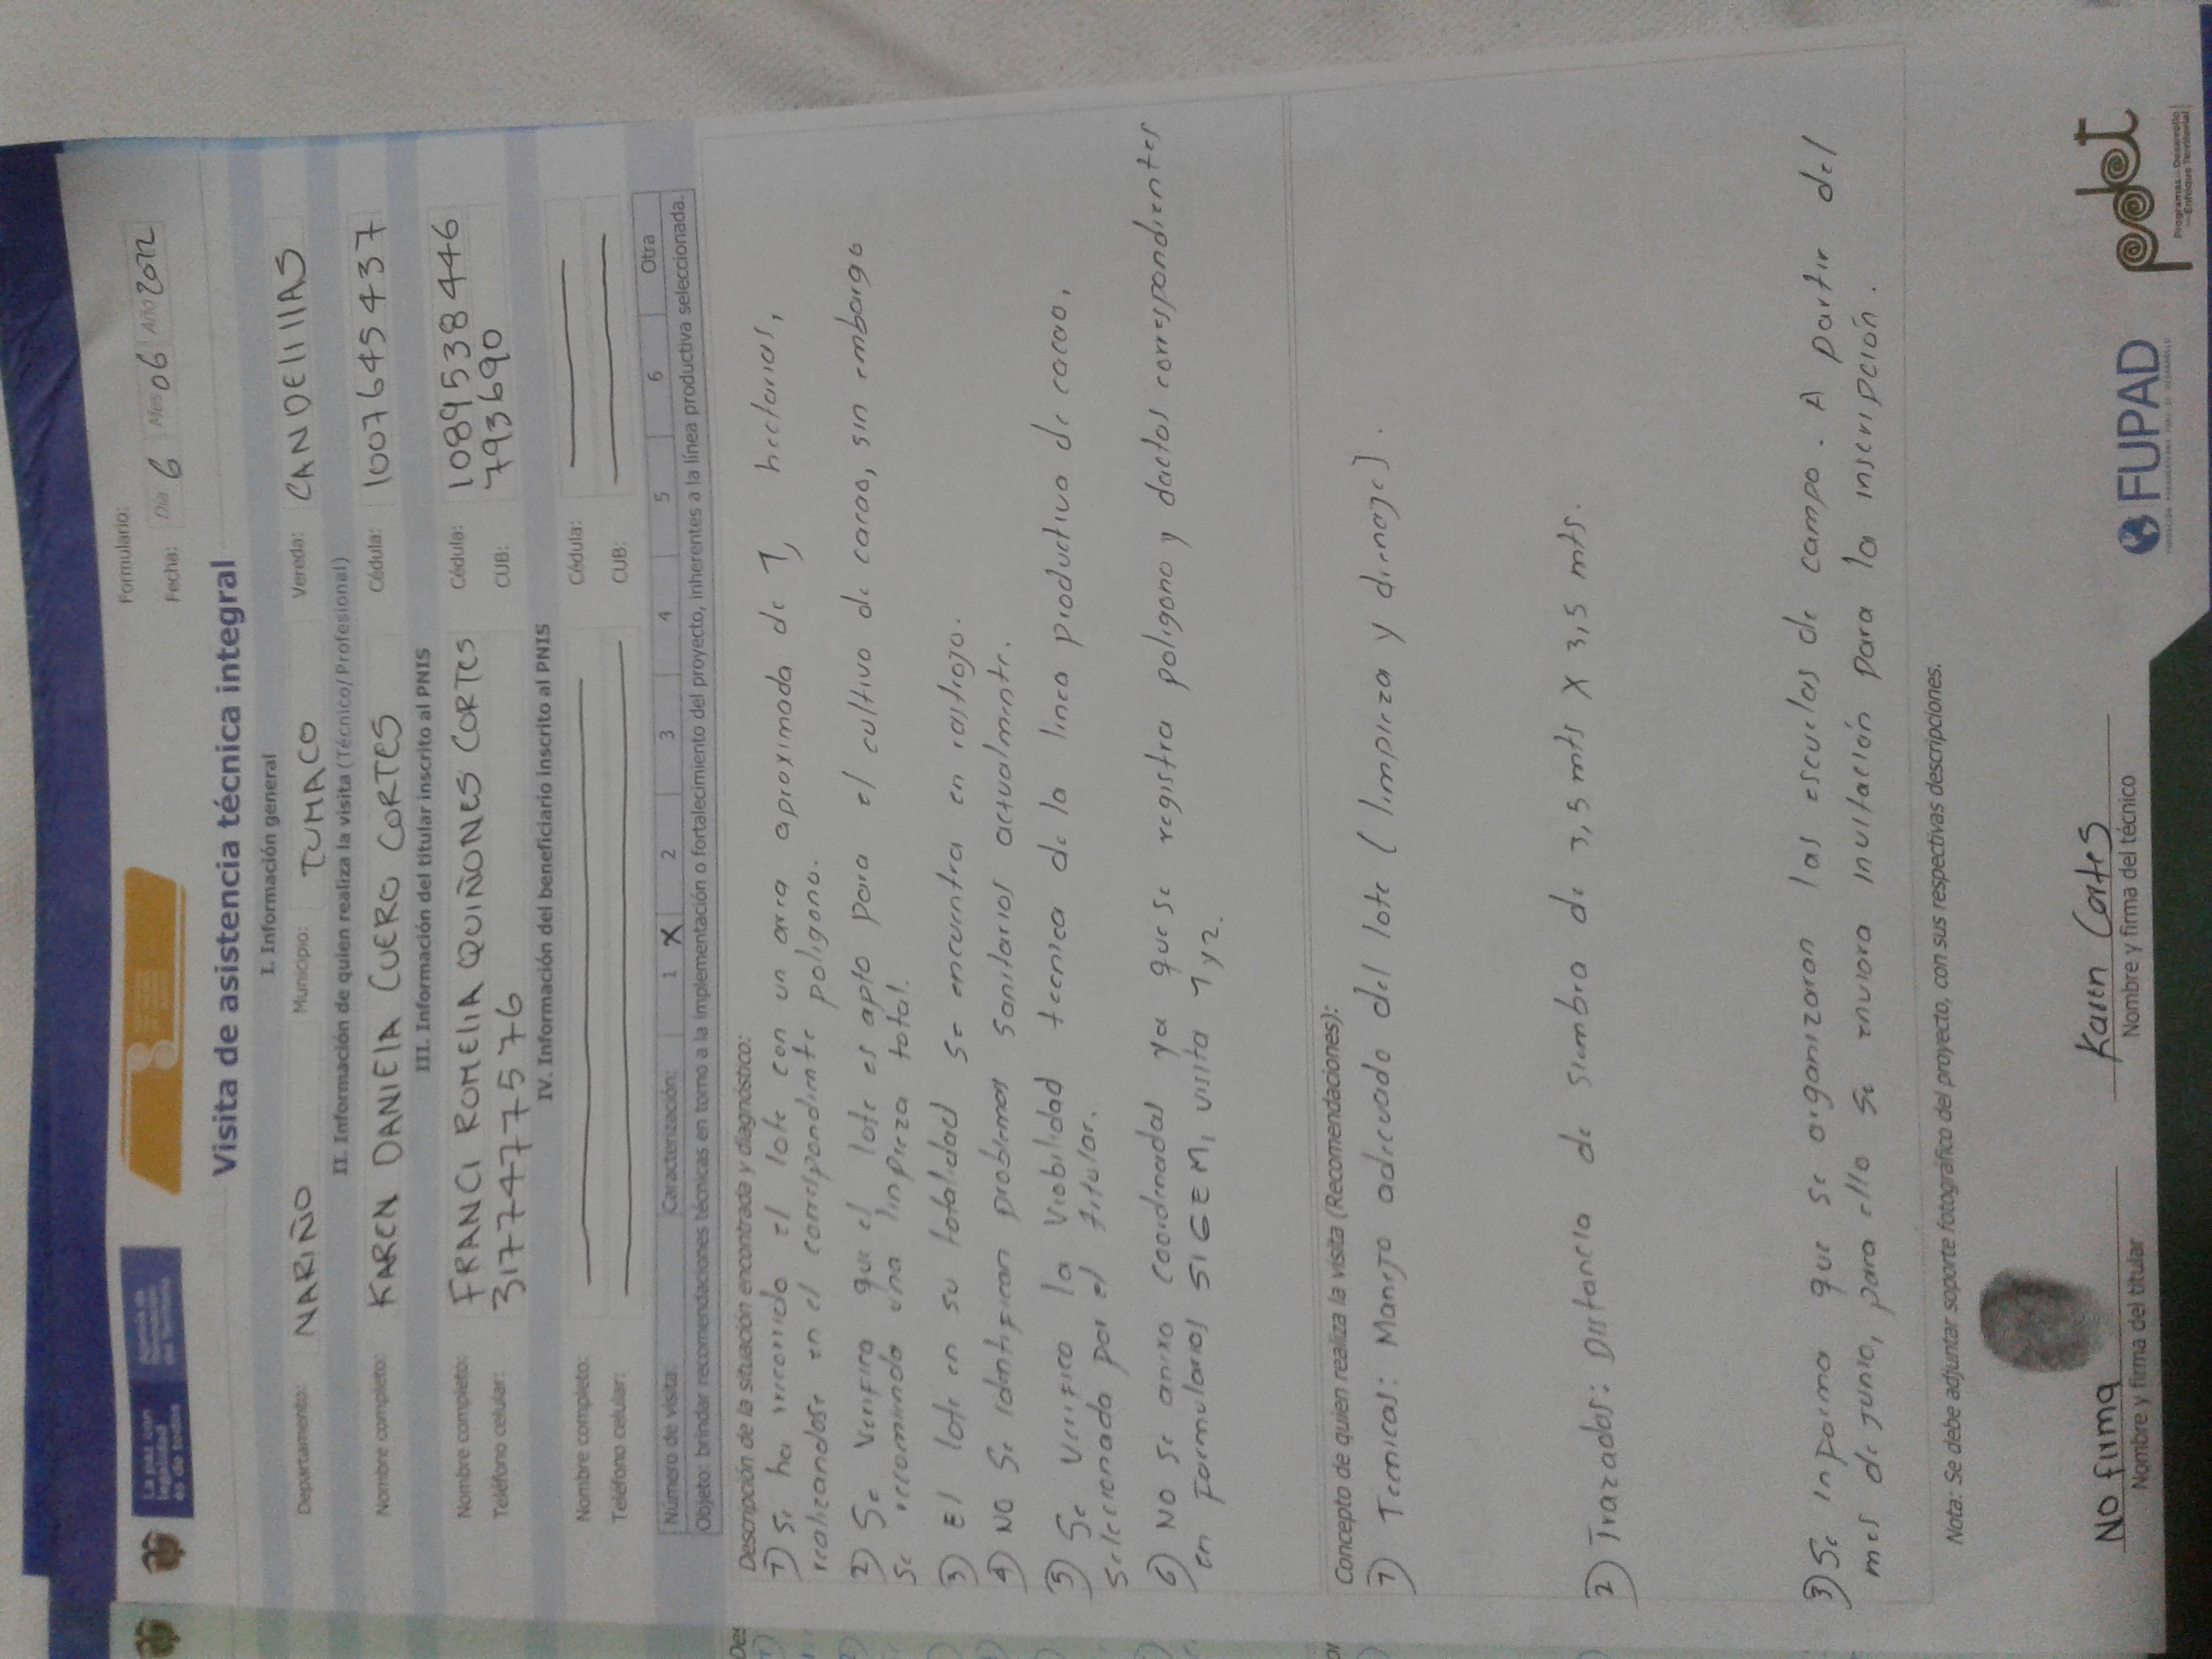 La paz con
legalidad
es de todos
Formulario:
Fecha: Día 6 Mes 06 Año 2022
Visita de asistencia técnica integral
I. Información general
Departamento: NARIÑO Municipio: TUMACO Vereda: CANDELILLAS
II. Información de quien realiza la visita (Técnico/Profesional)
Nombre completo: KAREN DANIELA CUERO CORTES Cédula: 1007645437
III. Información del titular inscrito al PNIS
Nombre completo: FRANCI ROMELIA QUIÑONES CORTES Cédula: 1089538446
Teléfono celular: 3177477576 CUB: 793690
IV. Información del beneficiario inscrito al PNIS
Nombre completo: Cédula:
Teléfono celular: CUB:
Número de visita: Caracterización: 1 X 2 3 4 5 6 Otra
Objeto: brindar recomendaciones técnicas en torno a la implementación o fortalecimiento del proyecto, inherentes a la línea productiva seleccionada.
Descripción de la situación encontrada y diagnóstico:
1) Se ha recorrido el lote con un area aproximada de 1, hectarias,
realizandose en el correspondiente poligono.
2) Se Verifica que el lote es apto para el cultivo de cacao, sin embargo
se recomienda una limpieza total.
3) El lote en su totalidad se encuentra en rastrojo.
4) NO Se identifican problemas sanitarios actualmente.
5) Se Verifico la Viabilidad tecnica de la linea productiva de cacao,
Seleccionada por el titular.
6) NO se anexo coordinadas ya que se registra poligono y dactos correspondientes
en formularios SIGEM, visita 1 y 2.
Concepto de quien realiza la visita (Recomendaciones):
1) Tecnicas: Manejo adecuado del lote ( limpieza y drenaje).
2) Trazados: Distancia de siembra de 3,5 mts X 3,5 mts.
3) Se informa que se organizaran las escuelas de campo. A partir del
mes de junio, para ello se enviara invitación para la inscripción.
Nota: Se debe adjuntar soporte fotográfico del proyecto, con sus respectivas descripciones.
NO firma
Nombre y firma del titular
Karen Cortes
Nombre y firma del técnico
FUPAD
pdet
Programas de Desarrollo
con Enfoque Territorial